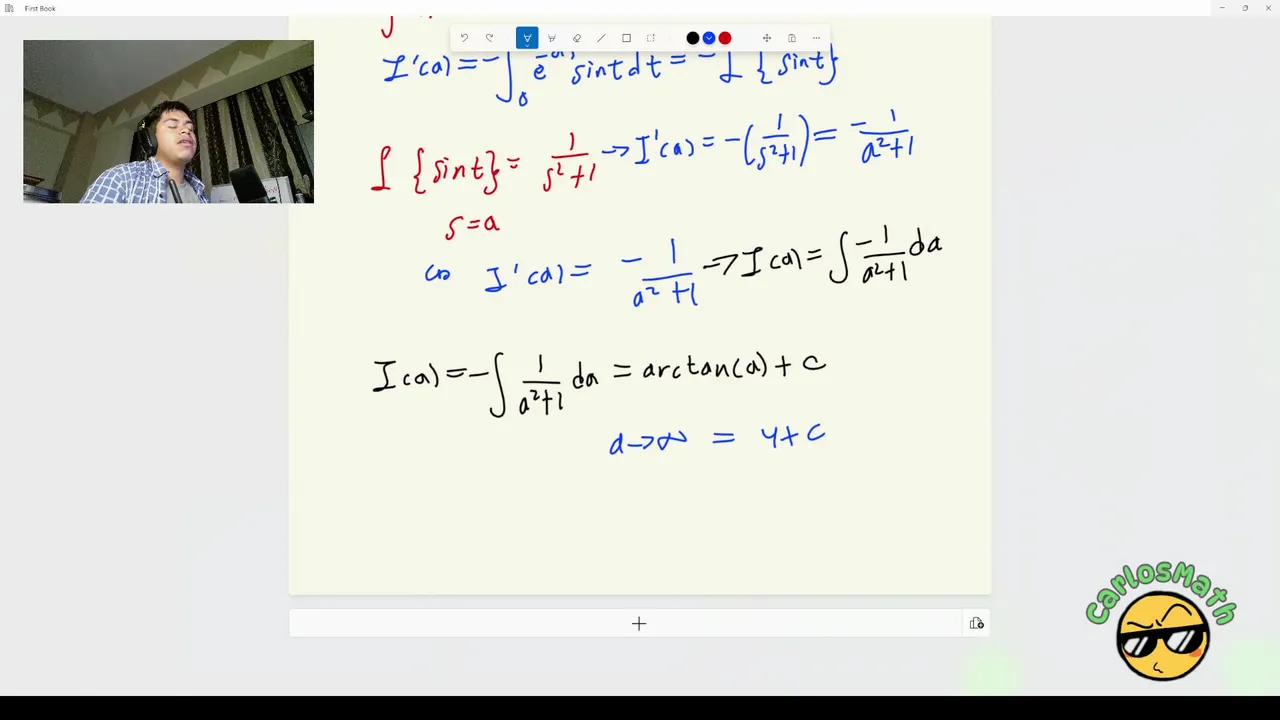 First Book
I'(a) = -∫₀ e^-a sint dt = -L {sint}
L {sint} = 1/(s²+1) → I'(a) = -(1/(s²+1)) = -1/(a²+1)
s = a
⇔ I'(a) = -1/(a²+1) → I(a) = ∫ -1/(a²+1) da
I(a) = -∫ 1/(a²+1) da = arctan(a) + c
a → ∞ = y + c
CarlosMath